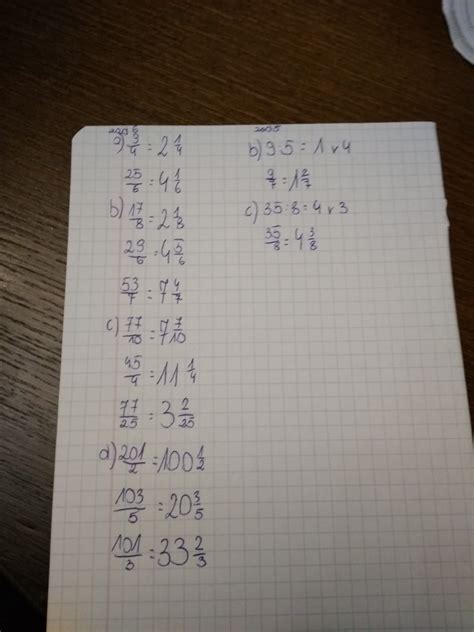 a) 9/4 = 2 1/4
25/6 = 4 1/6
b) 17/8 = 2 1/8
29/6 = 4 5/6
53/7 = 7 4/7
c) 77/10 = 7 7/10
45/4 = 11 1/4
77/25 = 3 2/25
d) 201/2 = 100 1/2
103/5 = 20 3/5
101/3 = 33 2/3
zad 5
b) 9:5 = 1 r 4
9/7 = 1 2/7
c) 35:8 = 4 r 3
35/8 = 4 3/8